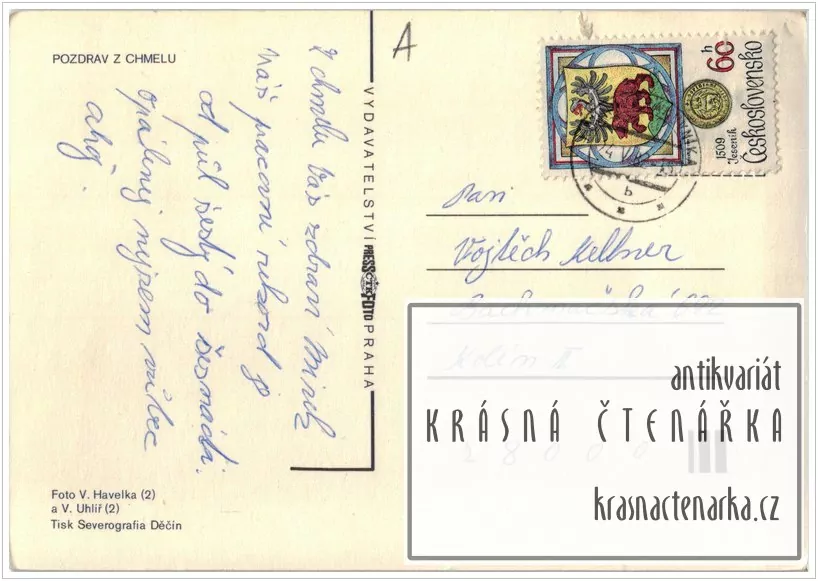 POZDRAV Z CHMELU
A
Z chmelu Vás zdraví Mirek
náš pracovní rekord je
od půl šesté do
opálený nejsem vůbec
ahoj.
VYDAVATELSTVÍ PRESSFOTO PRAHA
ČTK
Foto V. Havelka (2)
a V. Uhlíř (2)
Tisk Severografia Děčín
60 h
1509
Jeseník
Československo
b
Pan
Vojtěch Kellner
Kolín II
28000
antikvariát
KRÁSNÁ ČTENÁŘKA
krasnactenarka.cz